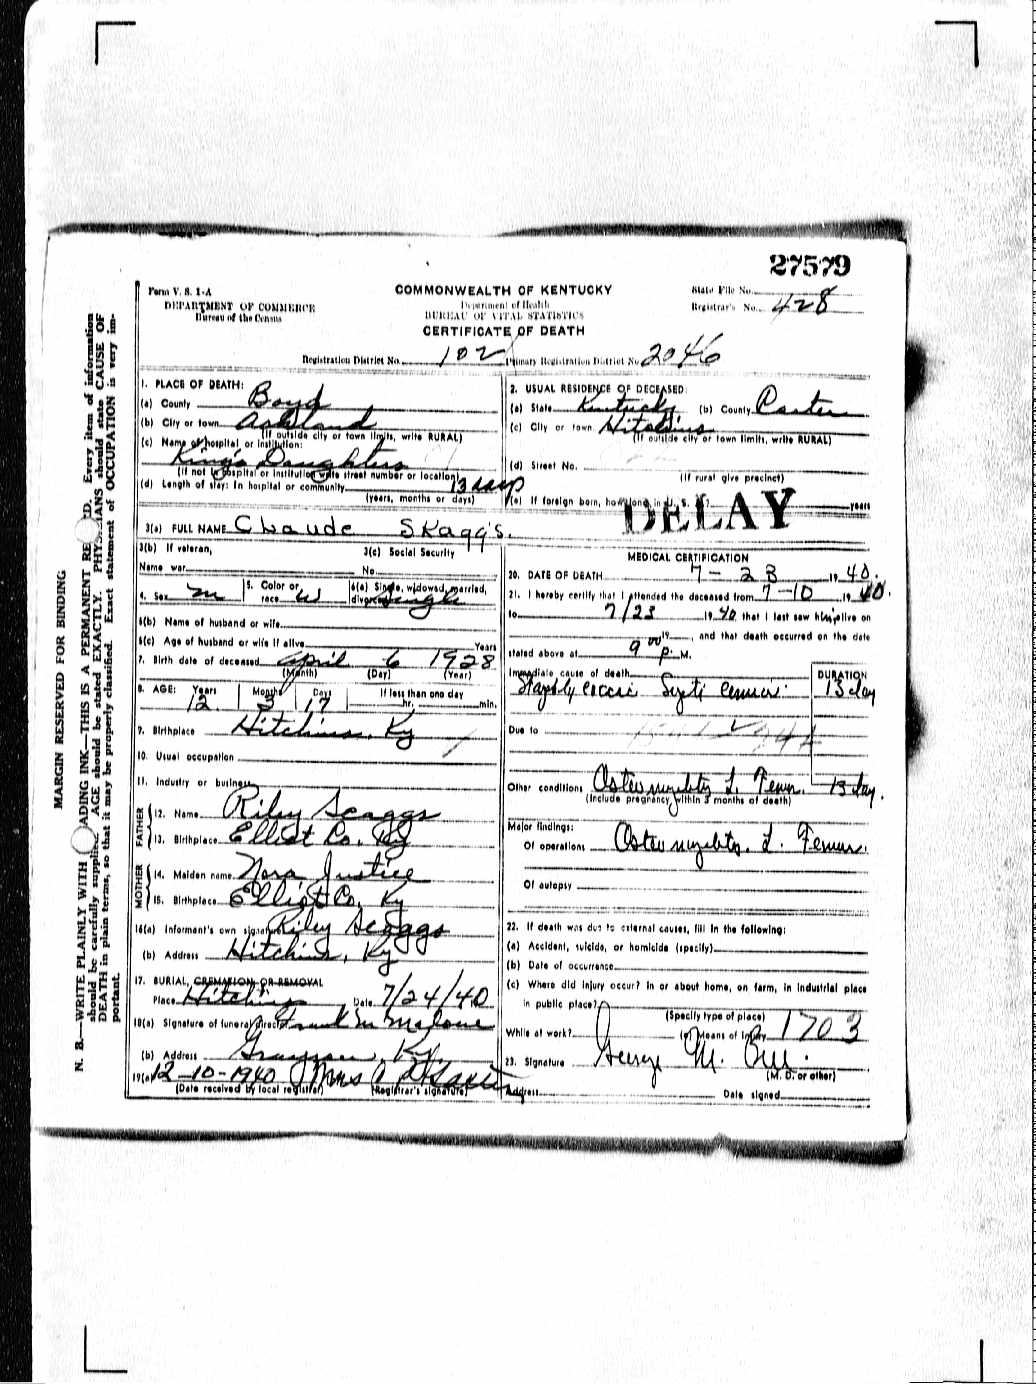 27579
Form V. S. 1-A
DEPARTMENT OF COMMERCE
Bureau of the Census
COMMONWEALTH OF KENTUCKY
Department of Health
BUREAU OF VITAL STATISTICS
CERTIFICATE OF DEATH
State File No.
Registrar's No. 428
Registration District No. 102 Primary Registration District No. 2046
1. PLACE OF DEATH:
(a) County Boyd
(b) City or town Ashland
(If outside city or town limits, write RURAL)
(c) Name of hospital or institution:
King's Daughters
(If not in hospital or institution write street number or location)
(d) Length of stay: In hospital or community 13 days
(years, months or days)
2. USUAL RESIDENCE OF DECEASED:
(a) State Kentucky (b) County Carter
(c) City or town Hitchins
(If outside city or town limits, write RURAL)
(d) Street No.
(If rural give precinct)
(e) If foreign born, how long in U. S. A.? years
DELAY
3(a) FULL NAME Claude Skaggs.
3(b) If veteran,
Name war
3(c) Social Security
No.
4. Sex m 5. Color or race W 6(a) Single, widowed, married, divorced Single
6(b) Name of husband or wife
6(c) Age of husband or wife if alive Years
7. Birth date of deceased April 6 1928
(Month) (Day) (Year)
8. AGE: Years Months Days If less than one day
12 3 17 hr. min.
9. Birthplace Hitchins, Ky
10. Usual occupation
11. Industry or business
FATHER
12. Name Riley Scaggs
13. Birthplace Elliot Co. Ky
MOTHER
14. Maiden name Nora Justice
15. Birthplace Elliot Co. Ky
16(a) Informant's own signature Riley Scaggs
(b) Address Hitchins, Ky
17. BURIAL, CREMATION OR REMOVAL
Place Hitchins Date 7/24/40
18(a) Signature of funeral director Frank M Malone
(b) Address Grayson, Ky.
19(a) 12-10-1940 Mrs
(Date received by local registrar) (Registrar's signature)
MEDICAL CERTIFICATION
20. DATE OF DEATH 7-23 1940.
21. I hereby certify that I attended the deceased from 7-10 1940.
to 7/23 1940 that I last saw him alive on
19 , and that death occurred on the date
stated above at 9 00 P. M.
Immediate cause of death
DURATION
13 day
Due to
Other conditions Osteomyelitis L. Femur. 13 day.
(Include pregnancy within 3 months of death)
Major findings:
Of operations Osteomyelitis. L. Femur.
Of autopsy
22. If death was due to external causes, fill in the following:
(a) Accident, suicide, or homicide (specify)
(b) Date of occurrence
(c) Where did injury occur? In or about home, on farm, in industrial place
in public place?
(Specify type of place)
While at work? (e) Means of Injury 1703
23. Signature George M.
(M. D. or other)
Address Date signed
MARGIN RESERVED FOR BINDING
N. B.—WRITE PLAINLY WITH UNFADING INK—THIS IS A PERMANENT RECORD. Every item of information
should be carefully supplied. AGE should be stated EXACTLY. PHYSICIANS should state CAUSE OF
DEATH in plain terms, so that it may be properly classified. Exact statement of OCCUPATION is very im-
portant.